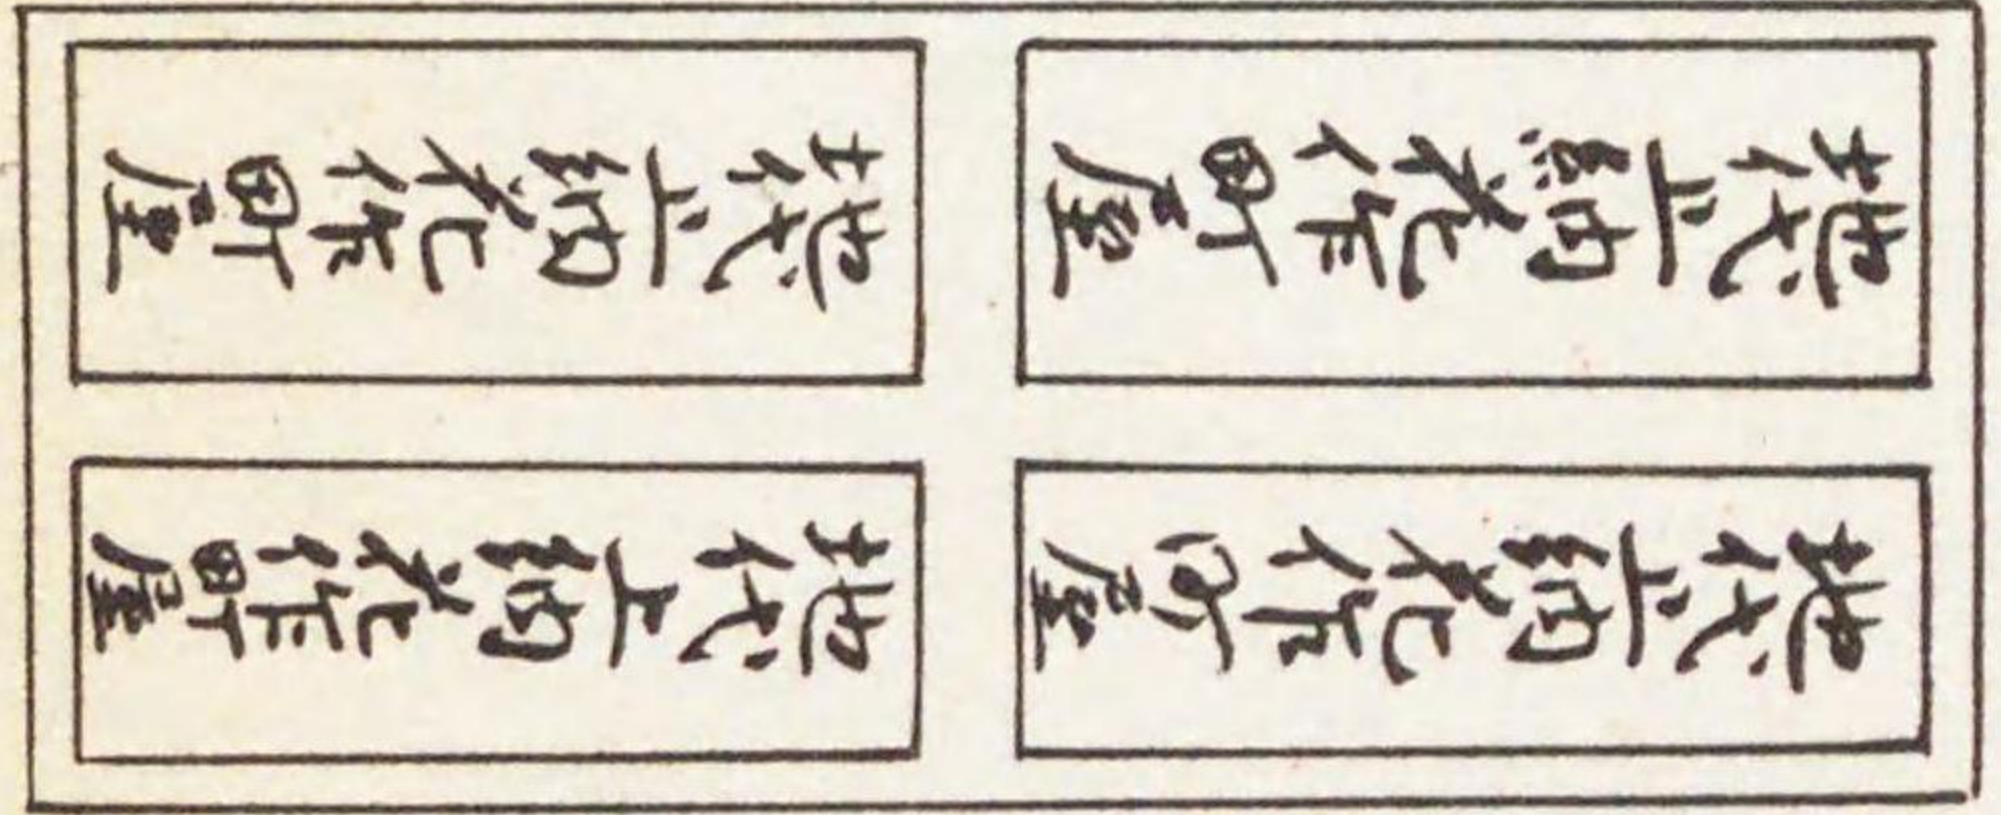 地代上納花作町屋
地代上納花作町屋
地代上納花作町屋
地代上納花作町屋